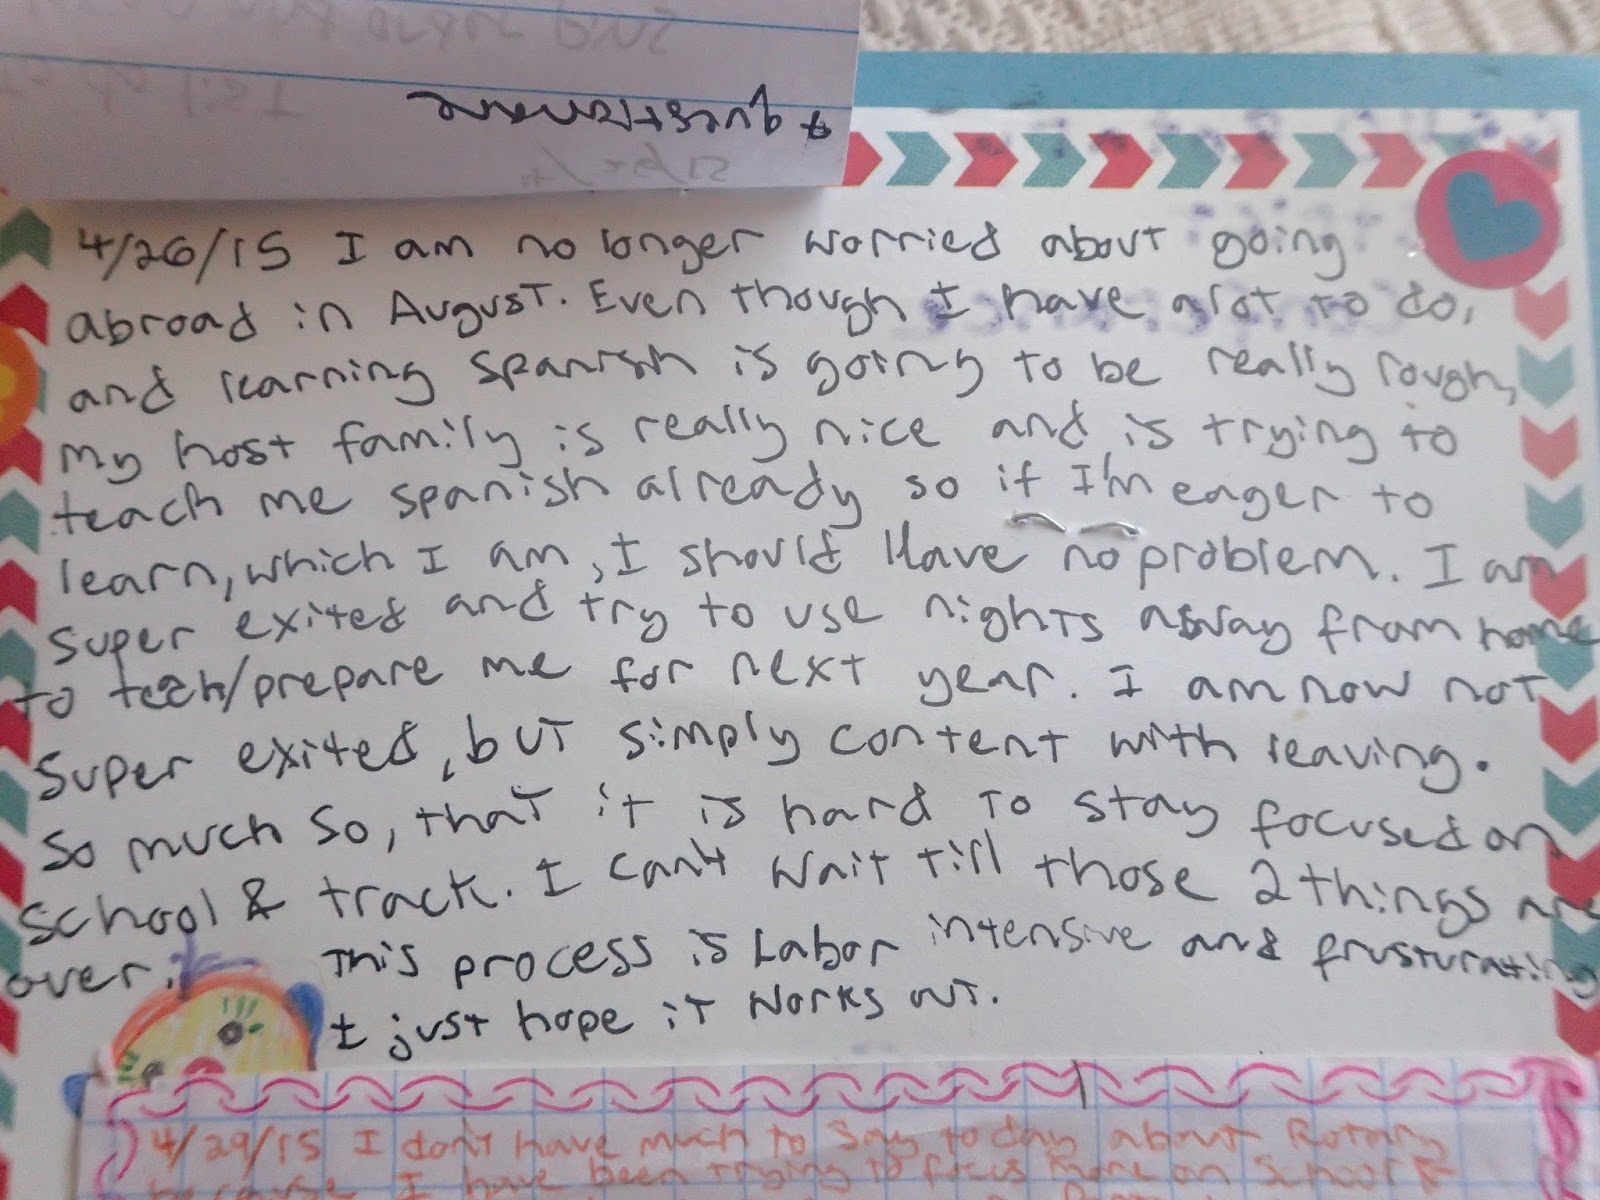 * questionnaire
4/26/15 I am no longer worried about going
abroad in August. Even though I have alot to do,
and learning spanish is going to be really rough,
my host family is really nice and is trying to
teach me spanish already so if I'm eager to
learn, which I am, I should Have no problem. I am
super exited and try to use nights away from home
to teach/prepare me for next year. I am now not
super exited, but simply content with leaving.
So much so, that it is hard to stay focused on
school & track. I can't wait till those 2 things are
over. This process is Labor intensive and frusturating
I just hope it works out.
4/29/15 I don't have much to say today about Rotary
because I have been trying to focus more on School